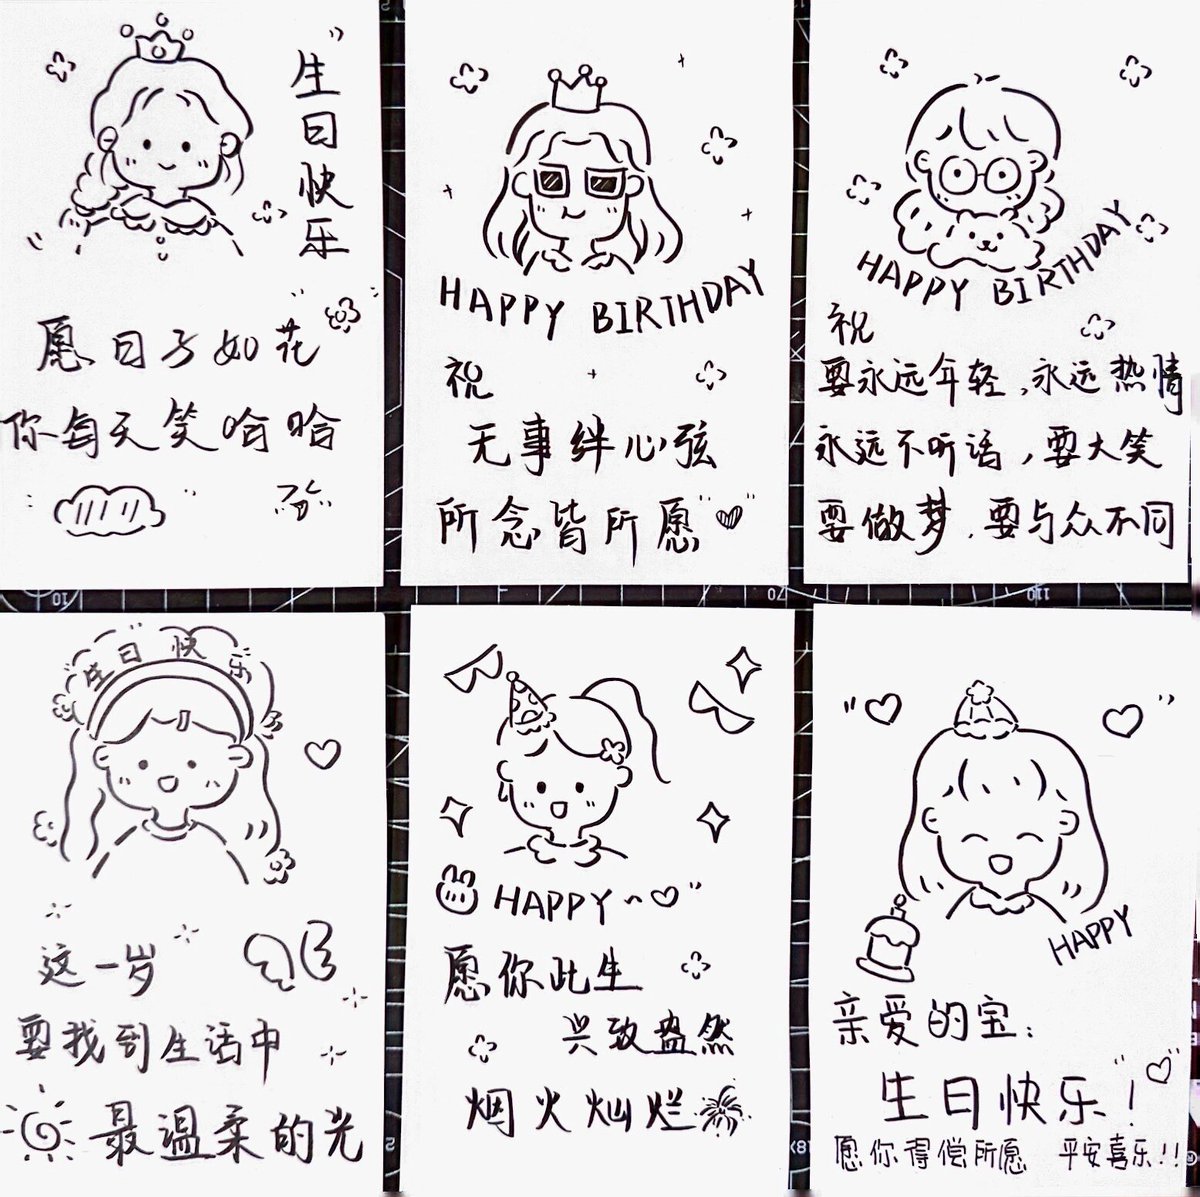 生日快乐
愿日子如花
你每天笑哈哈
HAPPY BIRTHDAY
祝
无事绊心弦
所念皆所愿
HAPPY BIRTHDAY
祝
要永远年轻，永远热情
永远不听话，要大笑
要做梦，要与众不同
生日快乐
这一岁
要找到生活中
最温柔的光
HAPPY~
愿你此生
兴致盎然
烟火灿烂
HAPPY
亲爱的宝：
生日快乐！
愿你得偿所愿 平安喜乐!!